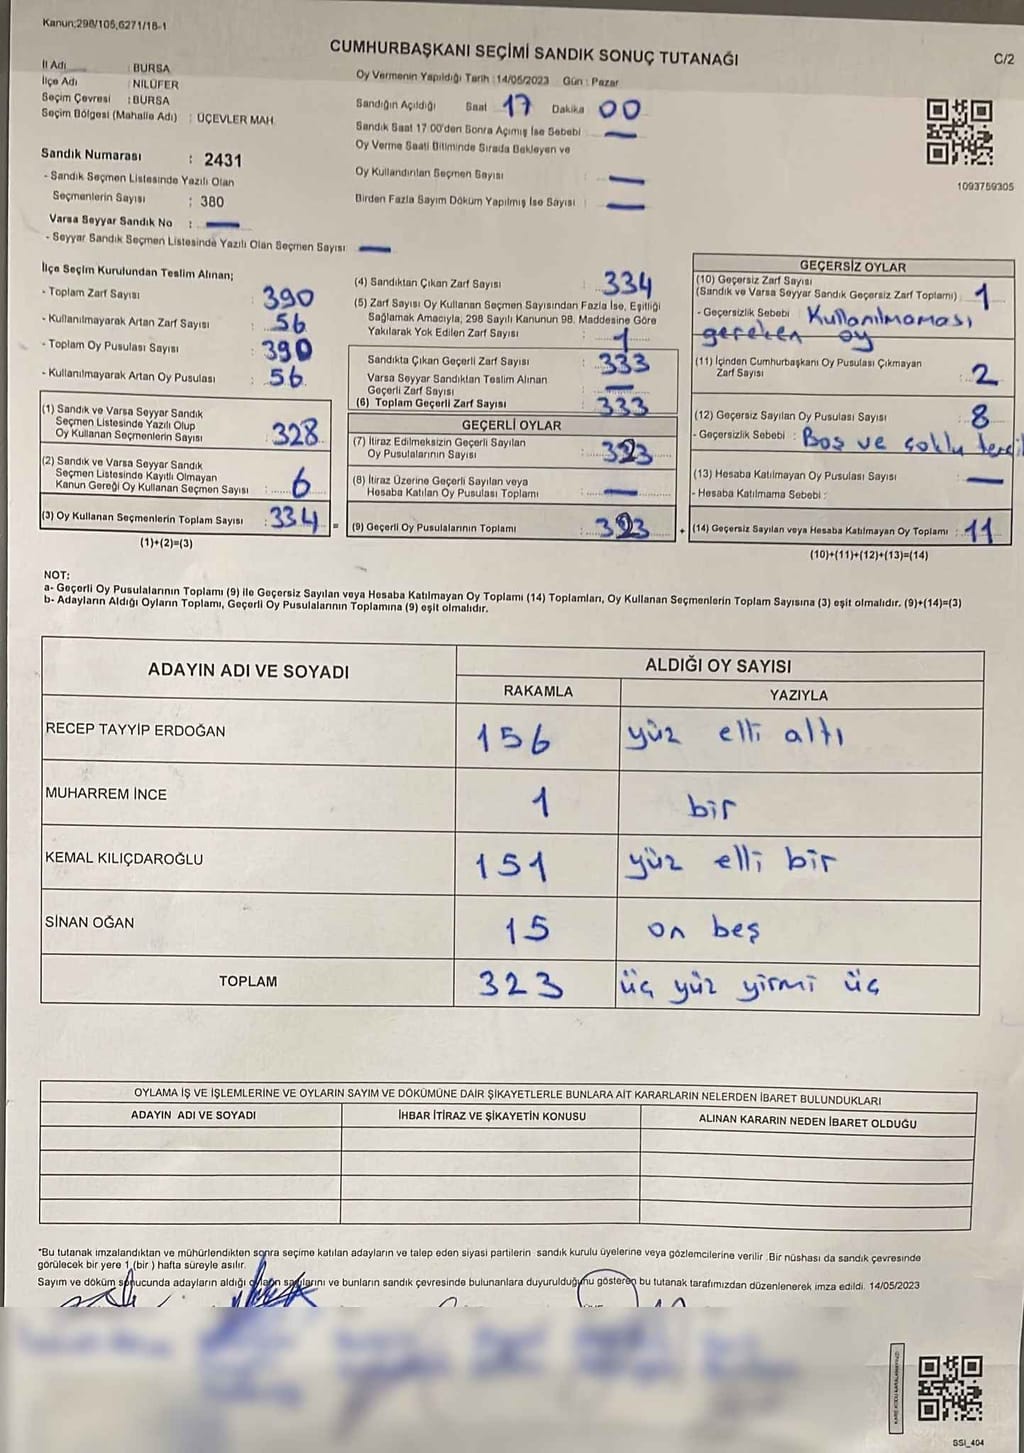 Kanun;298/105,6271/18-1
CUMHURBAŞKANI SEÇİMİ SANDIK SONUÇ TUTANAĞI
C/2
İl Adı : BURSA
İlçe Adı : NİLÜFER
Seçim Çevresi : BURSA
Seçim Bölgesi (Mahalle Adı) : ÜÇEVLER MAH.
Oy Vermenin Yapıldığı Tarih :14/05/2023 Gün : Pazar
Sandığın Açıldığı Saat 17 Dakika 00
Sandık Saat 17:00'den Sonra Açımış İse Sebebi : —
Oy Verme Saati Bitiminde Sırada Bekleyen ve
Oy Kullandırılan Seçmen Sayısı : —
Birden Fazla Sayım Döküm Yapılmış İse Sayısı : —
1093759305
Sandık Numarası : 2431
- Sandık Seçmen Listesinde Yazılı Olan
Seçmenlerin Sayısı : 380
Varsa Seyyar Sandık No : —
- Seyyar Sandık Seçmen Listesinde Yazılı Olan Seçmen Sayısı: —
İlçe Seçim Kurulundan Teslim Alınan;
- Toplam Zarf Sayısı : 390
- Kullanılmayarak Artan Zarf Sayısı : 56
- Toplam Oy Pusulası Sayısı : 390
- Kullanılmayarak Artan Oy Pusulası : 56
(1) Sandık ve Varsa Seyyar Sandık
Seçmen Listesinde Yazılı Olup
Oy Kullanan Seçmenlerin Sayısı : 328
(2) Sandık ve Varsa Seyyar Sandık
Seçmen Listesinde Kayıtlı Olmayan
Kanun Gereği Oy Kullanan Seçmen Sayısı : 6
(3) Oy Kullanan Seçmenlerin Toplam Sayısı : 334 =
(1)+(2)=(3)
(4) Sandıktan Çıkan Zarf Sayısı : 334
(5) Zarf Sayısı Oy Kullanan Seçmen Sayısından Fazla İse, Eşitliği
Sağlamak Amacıyla, 298 Sayılı Kanunun 98. Maddesine Göre
Yakılarak Yok Edilen Zarf Sayısı : 1
Sandıkta Çıkan Geçerli Zarf Sayısı : 333
Varsa Seyyar Sandıktan Teslim Alınan
Geçerli Zarf Sayısı : —
(6) Toplam Geçerli Zarf Sayısı : 333
GEÇERLİ OYLAR
(7) İtiraz Edilmeksizin Geçerli Sayılan
Oy Pusulalarının Sayısı : 323
(8) İtiraz Üzerine Geçerli Sayılan veya
Hesaba Katılan Oy Pusulası Toplamı : —
(9) Geçerli Oy Pusulalarının Toplamı : 323 +
GEÇERSİZ OYLAR
(10) Geçersiz Zarf Sayısı
(Sandık ve Varsa Seyyar Sandık Geçersiz Zarf Toplamı) : 1
- Geçersizlik Sebebi : Kullanılmaması
gereken oy
(11) İçinden Cumhurbaşkanı Oy Pusulası Çıkmayan
Zarf Sayısı : 2
(12) Geçersiz Sayılan Oy Pusulası Sayısı : 8
- Geçersizlik Sebebi : Boş ve çoklu
(13) Hesaba Katılmayan Oy Pusulası Sayısı : —
- Hesaba Katılmama Sebebi :
(14) Geçersiz Sayılan veya Hesaba Katılmayan Oy Toplamı : 11
(10)+(11)+(12)+(13)=(14)
NOT:
a- Geçerli Oy Pusulalarının Toplamı (9) ile Geçersiz Sayılan veya Hesaba Katılmayan Oy Toplamı (14) Toplamları, Oy Kullanan Seçmenlerin Toplam Sayısına (3) eşit olmalıdır. (9)+(14)=(3)
b- Adayların Aldığı Oyların Toplamı, Geçerli Oy Pusulalarının Toplamına (9) eşit olmalıdır.
ADAYIN ADI VE SOYADI ALDIĞI OY SAYISI
RAKAMLA YAZIYLA
RECEP TAYYİP ERDOĞAN 156 yüz elli altı
MUHARREM İNCE 1 bir
KEMAL KILIÇDAROĞLU 151 yüz elli bir
SİNAN OĞAN 15 on beş
TOPLAM 323 üç yüz yirmi üç
OYLAMA İŞ VE İŞLEMLERİNE VE OYLARIN SAYIM VE DÖKÜMÜNE DAİR ŞİKAYETLERLE BUNLARA AİT KARARLARIN NELERDEN İBARET BULUNDUKLARI
ADAYIN ADI VE SOYADI İHBAR İTİRAZ VE ŞİKAYETİN KONUSU ALINAN KARARIN NEDEN İBARET OLDUĞU
*Bu tutanak imzalandıktan ve mühürlendikten sonra seçime katılan adayların ve talep eden siyasi partilerin sandık kurulu üyelerine veya gözlemcilerine verilir .Bir nüshası da sandık çevresinde
görülecek bir yere 1 (bir ) hafta süreyle asılır.
Sayım ve döküm sonucunda adayların aldığı oyların sayılarını ve bunların sandık çevresinde bulunanlara duyurulduğunu gösteren bu tutanak tarafımızdan düzenlenerek imza edildi. 14/05/2023
SSI_404